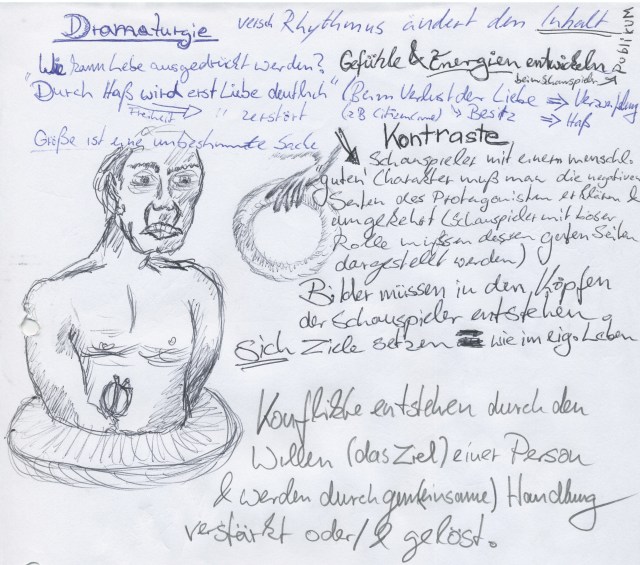 Dramaturgie
versch Rhythmus ändert den Inhalt
Gefühle & Energien entwickeln
PUBLIKUM
beim Schauspieler
"Wie kann Liebe ausgedrückt werden?
"Durch Haß wird erst Liebe deutlich"
Freiheit → " zerstört
(Beim Verlust der Liebe ⇒ Verzweiflung
(zB Citizen Kane) ↘ Besitz ⇒ Haß
Größe ist eine unbestimmte Sache
Kontraste
Schauspieler mit einem menschl.
guten Charakter muß man die negativen
Seiten des Protagonisten erklären &
umgekehrt (Schauspieler mit böser
Rolle müssen dessen guten Seiten
dargestellt werden)
Bilder müssen in den Köpfen
der Schauspieler entstehen
Sich Ziele setzen wie im eig. Leben
Konflikte entstehen durch den
Willen (das Ziel) einer Person
& werden durch gem(einsame) Handlung
verstärkt oder/& gelöst.